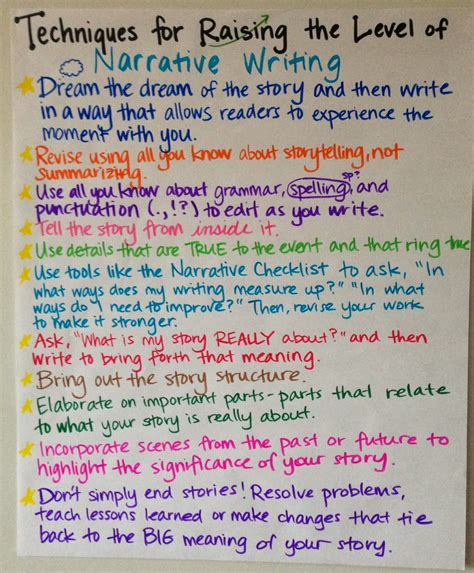 Techniques for Raising the Level of
Narrative Writing
Dream the dream of the story and then write
in a way that allows readers to experience the
moment with you.
Revise using all you know about storytelling, not
summarizing.
sp?
Use all you know about grammar, spelling, and
punctuation (.,!?) to edit as you write.
Tell the story from inside it.
Use details that are TRUE to the event and that ring true
Use tools like the Narrative Checklist to ask, "In
what ways does my writing measure up?" "In what
ways do I need to improve?" Then, revise your work
to make it stronger.
Ask, "What is my story REALLY about?" and then
write to bring forth that meaning.
Bring out the story structure.
Elaborate on important parts-parts that relate
to what your story is really about.
Incorporate scenes from the past or future to
highlight the significance of your story.
Don't simply end stories! Resolve problems,
teach lessons learned or make changes that tie
back to the BIG meaning of your story.